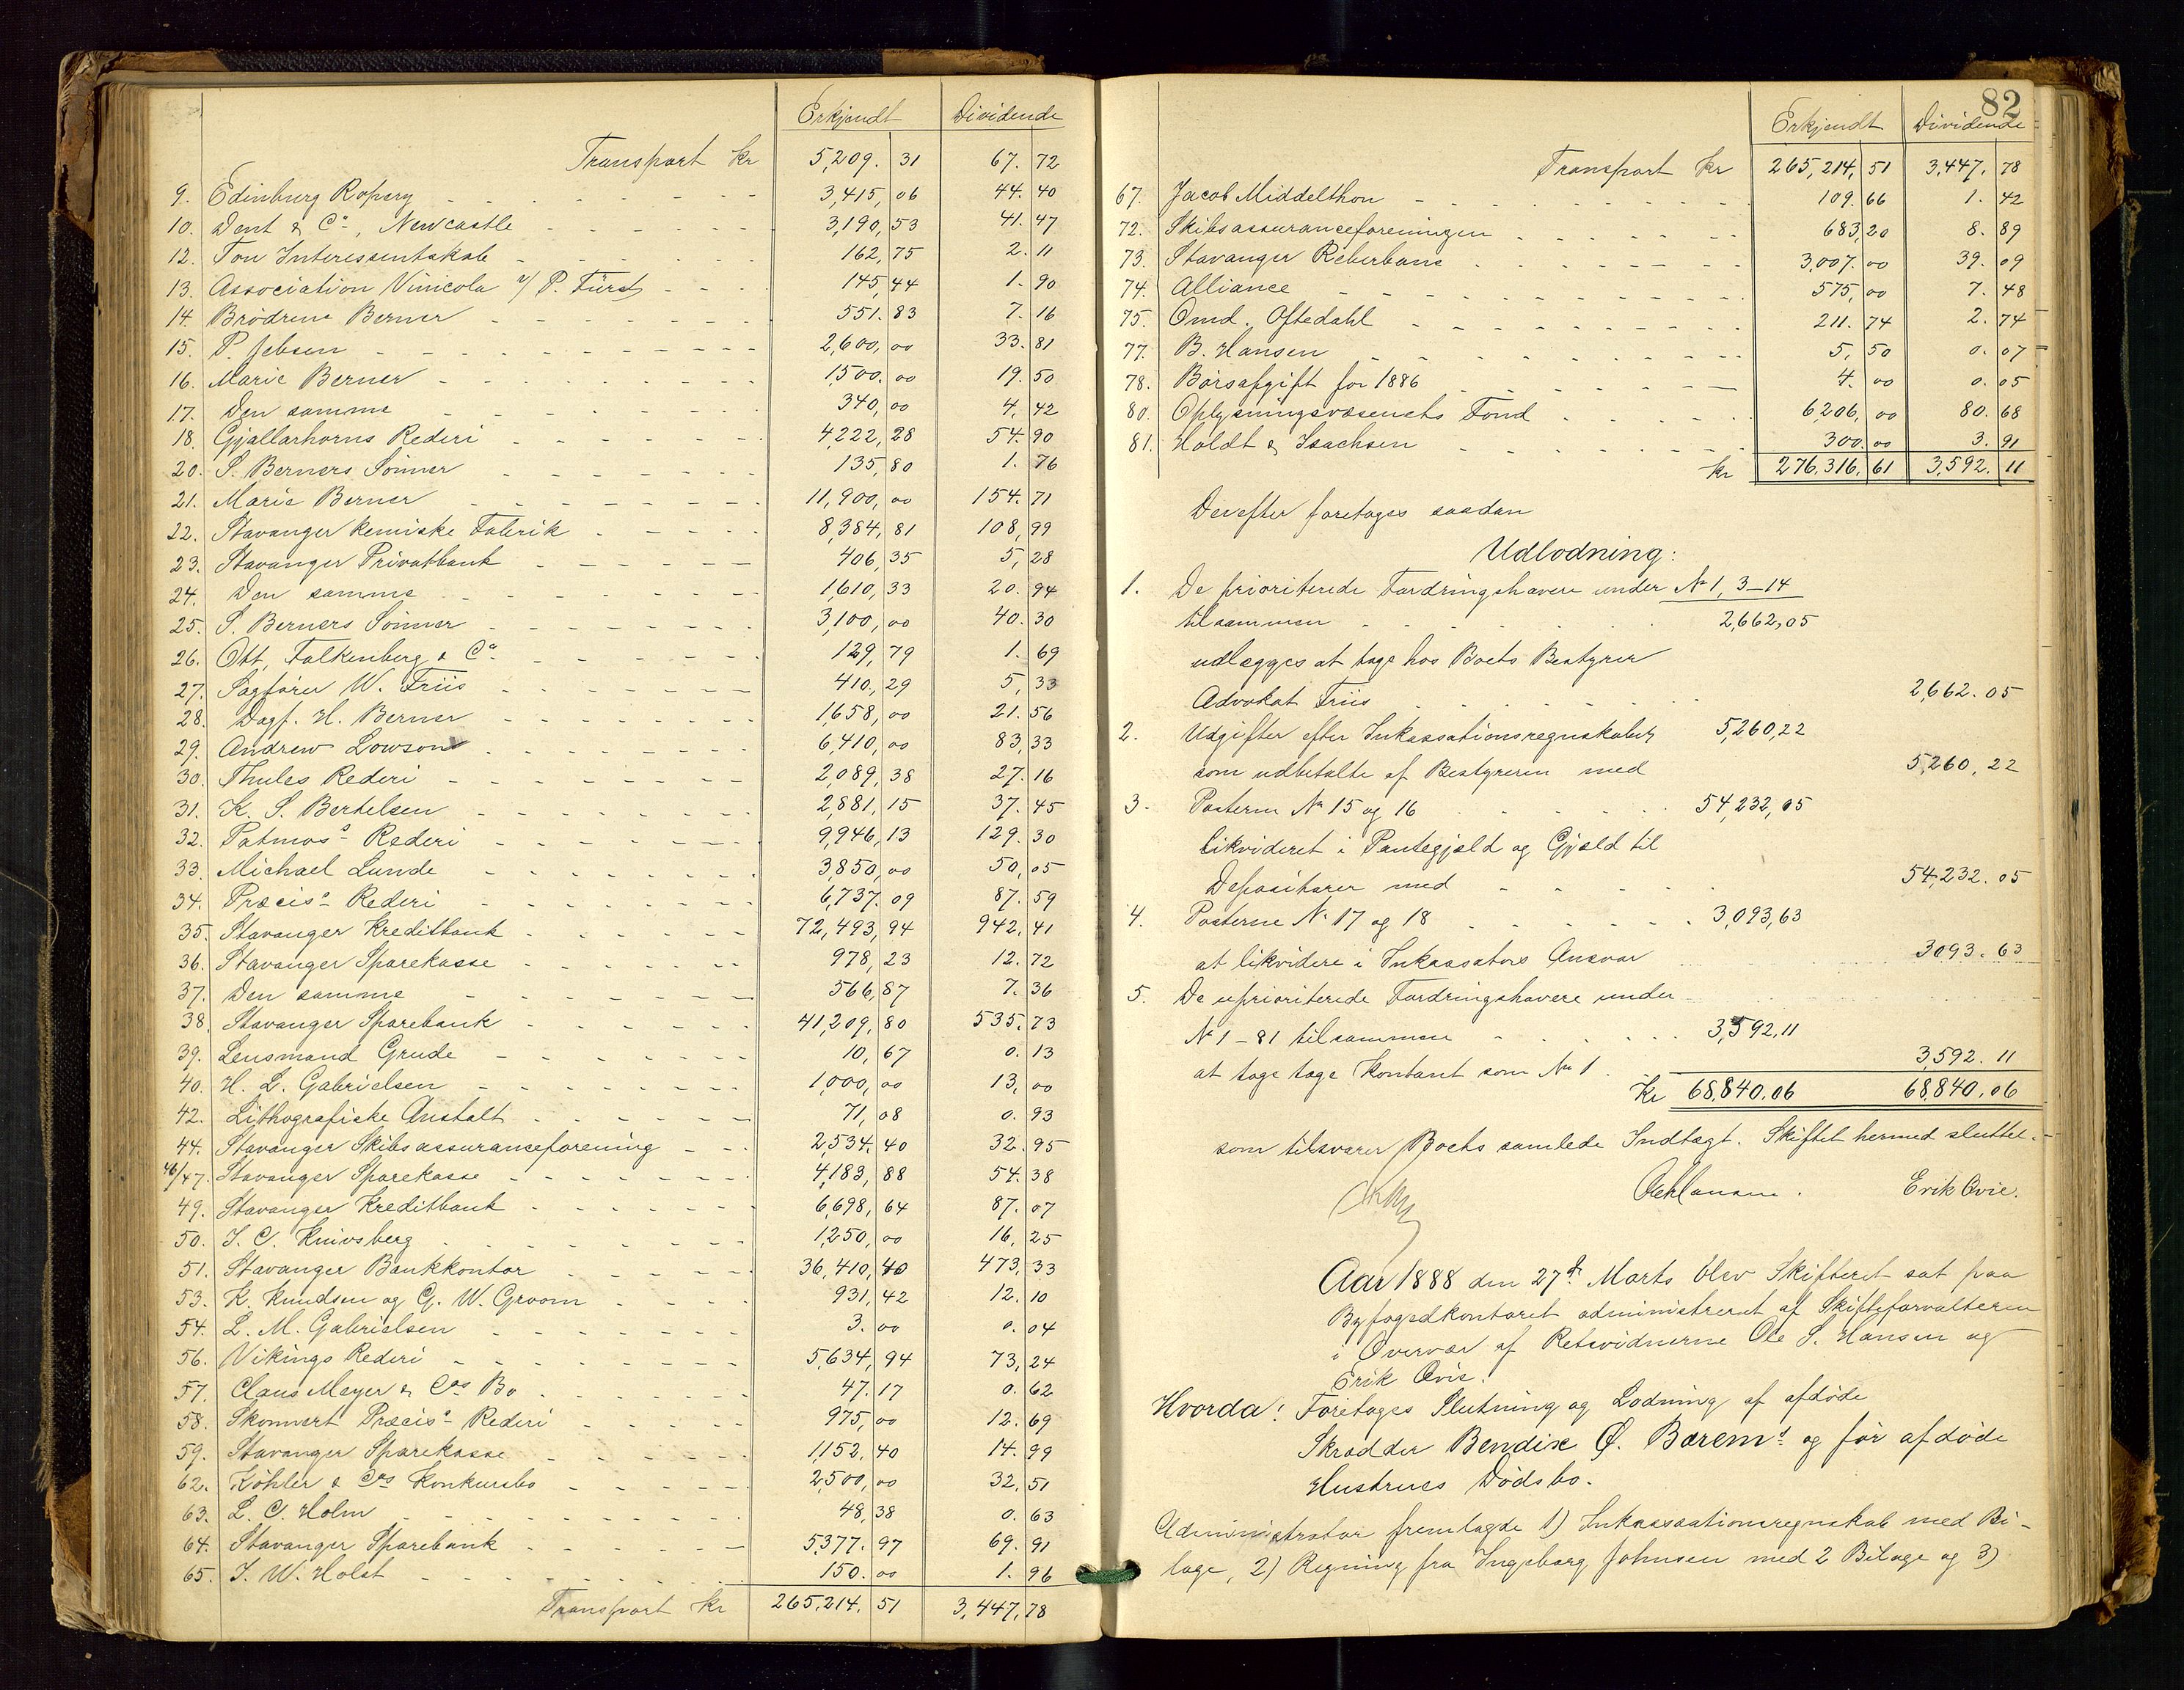 Erkjendt Dividende
Transport Kr 5,209.31 67.72
9. Edinburg Ropery 3,415,06 44.40
10. Dent & Co, Newcastle 3,190,53 41.47
12. Tou Interessentskab 162,75 2.11
13. Association Vinicola v/ P. Fürst 145,44 1.90
14. Brødrene Berner 551.83 7.16
15. P. Jebsen 2,600,00 33.81
16. Marie Berner 1,500.00 19.50
17. Den samme 340,00 4,42
18. Gjallarhorns Rederi 4,222,28 54.90
20. S. Berners Sønner 135,80 1.76
21. Marie Berner 11,900,00 154.71
22. Stavanger kemiske Fabrik 8,384,81 108,99
23. Stavanger Privatbank 406,35 5,28
24. Den samme 1,610,33 20.94
25. S. Berners Sønner 3,100,00 40.30
26. Ott, Falkenberg & Co 129,79 1.69
27. Sagfører W. Friis 410,29 5,33
28. Dagf. H. Berner 1,658,00 21.56
29. Andrew Lowson 6,410,00 83,33
30. Thules Rederi 2,089,38 27.16
31. K. S. Bertelsen 2,881,15 37.45
32. Patmos' Rederi 9,946,13 129.30
33. Michael Lunde 3,850,00 50,05
34. Præcis' Rederi 6,737.09 87.59
35. Stavanger Kreditbank 72,493,94 942,41
36. Stavanger Sparekasse 978,23 12.72
37. Den samme 566,87 7.36
38. Stavanger Sparebank 41,209,80 535.73
39. Lensmand Grude 10,67 0.13
40. H. L. Gabrielsen 1,000,00 13,00
42. Lithografiske Anstalt 71,08 0.93
44. Stavanger Skibsassuranceforening 2,534.40 32.95
46/47. Stavanger Sparekasse 4,183,88 54.38
49. Stavanger Kreditbank 6,698,64 87.07
50. J. C. Knivsberg 1,250,00 16,25
51. Stavanger Bankkontor 36,410,40 473,33
53. K. Knudsen og G. W. Groom 931,42 12.10
54. L. M. Gabrielsen 3.00 0.04
56. Vikings Rederi 5,634,94 73,24
57. Claus Meyer & Cos Bo 47.17 0.62
58. Skonnert Præcis' Rederi 975,00 12.69
59. Stavanger Sparekasse 1,152,40 14.99
62. Köhler & Cos Konkursbo 2,500,00 32,51
63. L. C. Holm 48,38 0.63
64. Stavanger Sparebank 5,377.97 69.91
65. J. W. Holst 150.00 1.96
Transport Kr 265,214,51 3,447,78
82
Erkjendt Dividende
Transport Kr 265,214,51 3,447.78
67. Jacob Middelthon 109.66 1.42
72. Skibsassuranceforeningen 683,20 8.89
73. Stavanger Reberbane 3,007.00 39.09
74. Alliance 575,00 7.48
75. Omd. Oftedahl 211.74 2.74
77. B. Hansen 5,50 0.07
78. Børsafgift for 1886 4.00 0.05
80. Oplysningsvæsenets Fond 6,206,00 80.68
81. Holdt & Isachsen 300.00 3.91
Kr 276,316,61 3,592.11
Derefter foretoges saadan
Udlodning:
1. De prioriterede Fordringshavere under No 1, 3–14
tilsammen 2,662,05
udlægges at tage hos Boets Bestyrer
Advokat Friis 2,662.05
2. Udgifter efter Inkassationsregnskabet 5,260,22
som udbetalte af Bestyreren med 5,260,22
3. Posterne No 15 og 16 54,232,05
likvideret i Pantegjæld og Gjæld til
Depositarer med 54,232.05
4. Posterne No 17 og 18 3,093,63
at likvidere i Inkassators Ansvar 3093.63
5. De uprioriterede Fordringshavere under
No 1–81 tilsammen 3,592,11
at tage tage kontant som No 1. 3,592.11
Kr 68,840.06 68,840.06
som tilsvarer Boets samlede Indtægt. Skiftet hermed sluttet.
Erik Qvie.
Aar 1888 den 27de Marts blev Skifteret sat paa
Byfogedkontoret administreret af Skifteforvalteren
i Overvær af Retsvidnerne Ole S. Hansen og
Erik Qvie.
Hvorda: Foretoges Slutning og Lodning af afdøde
Skrædder Bendix Ø. Borems og før afdøde
Hustrues Dødsbo.
Administrator fremlagde 1) Inkassationsregnskab med Bi-
lage, 2) Regning fra Ingeborg Johnsen med 2 Bilage og 3)